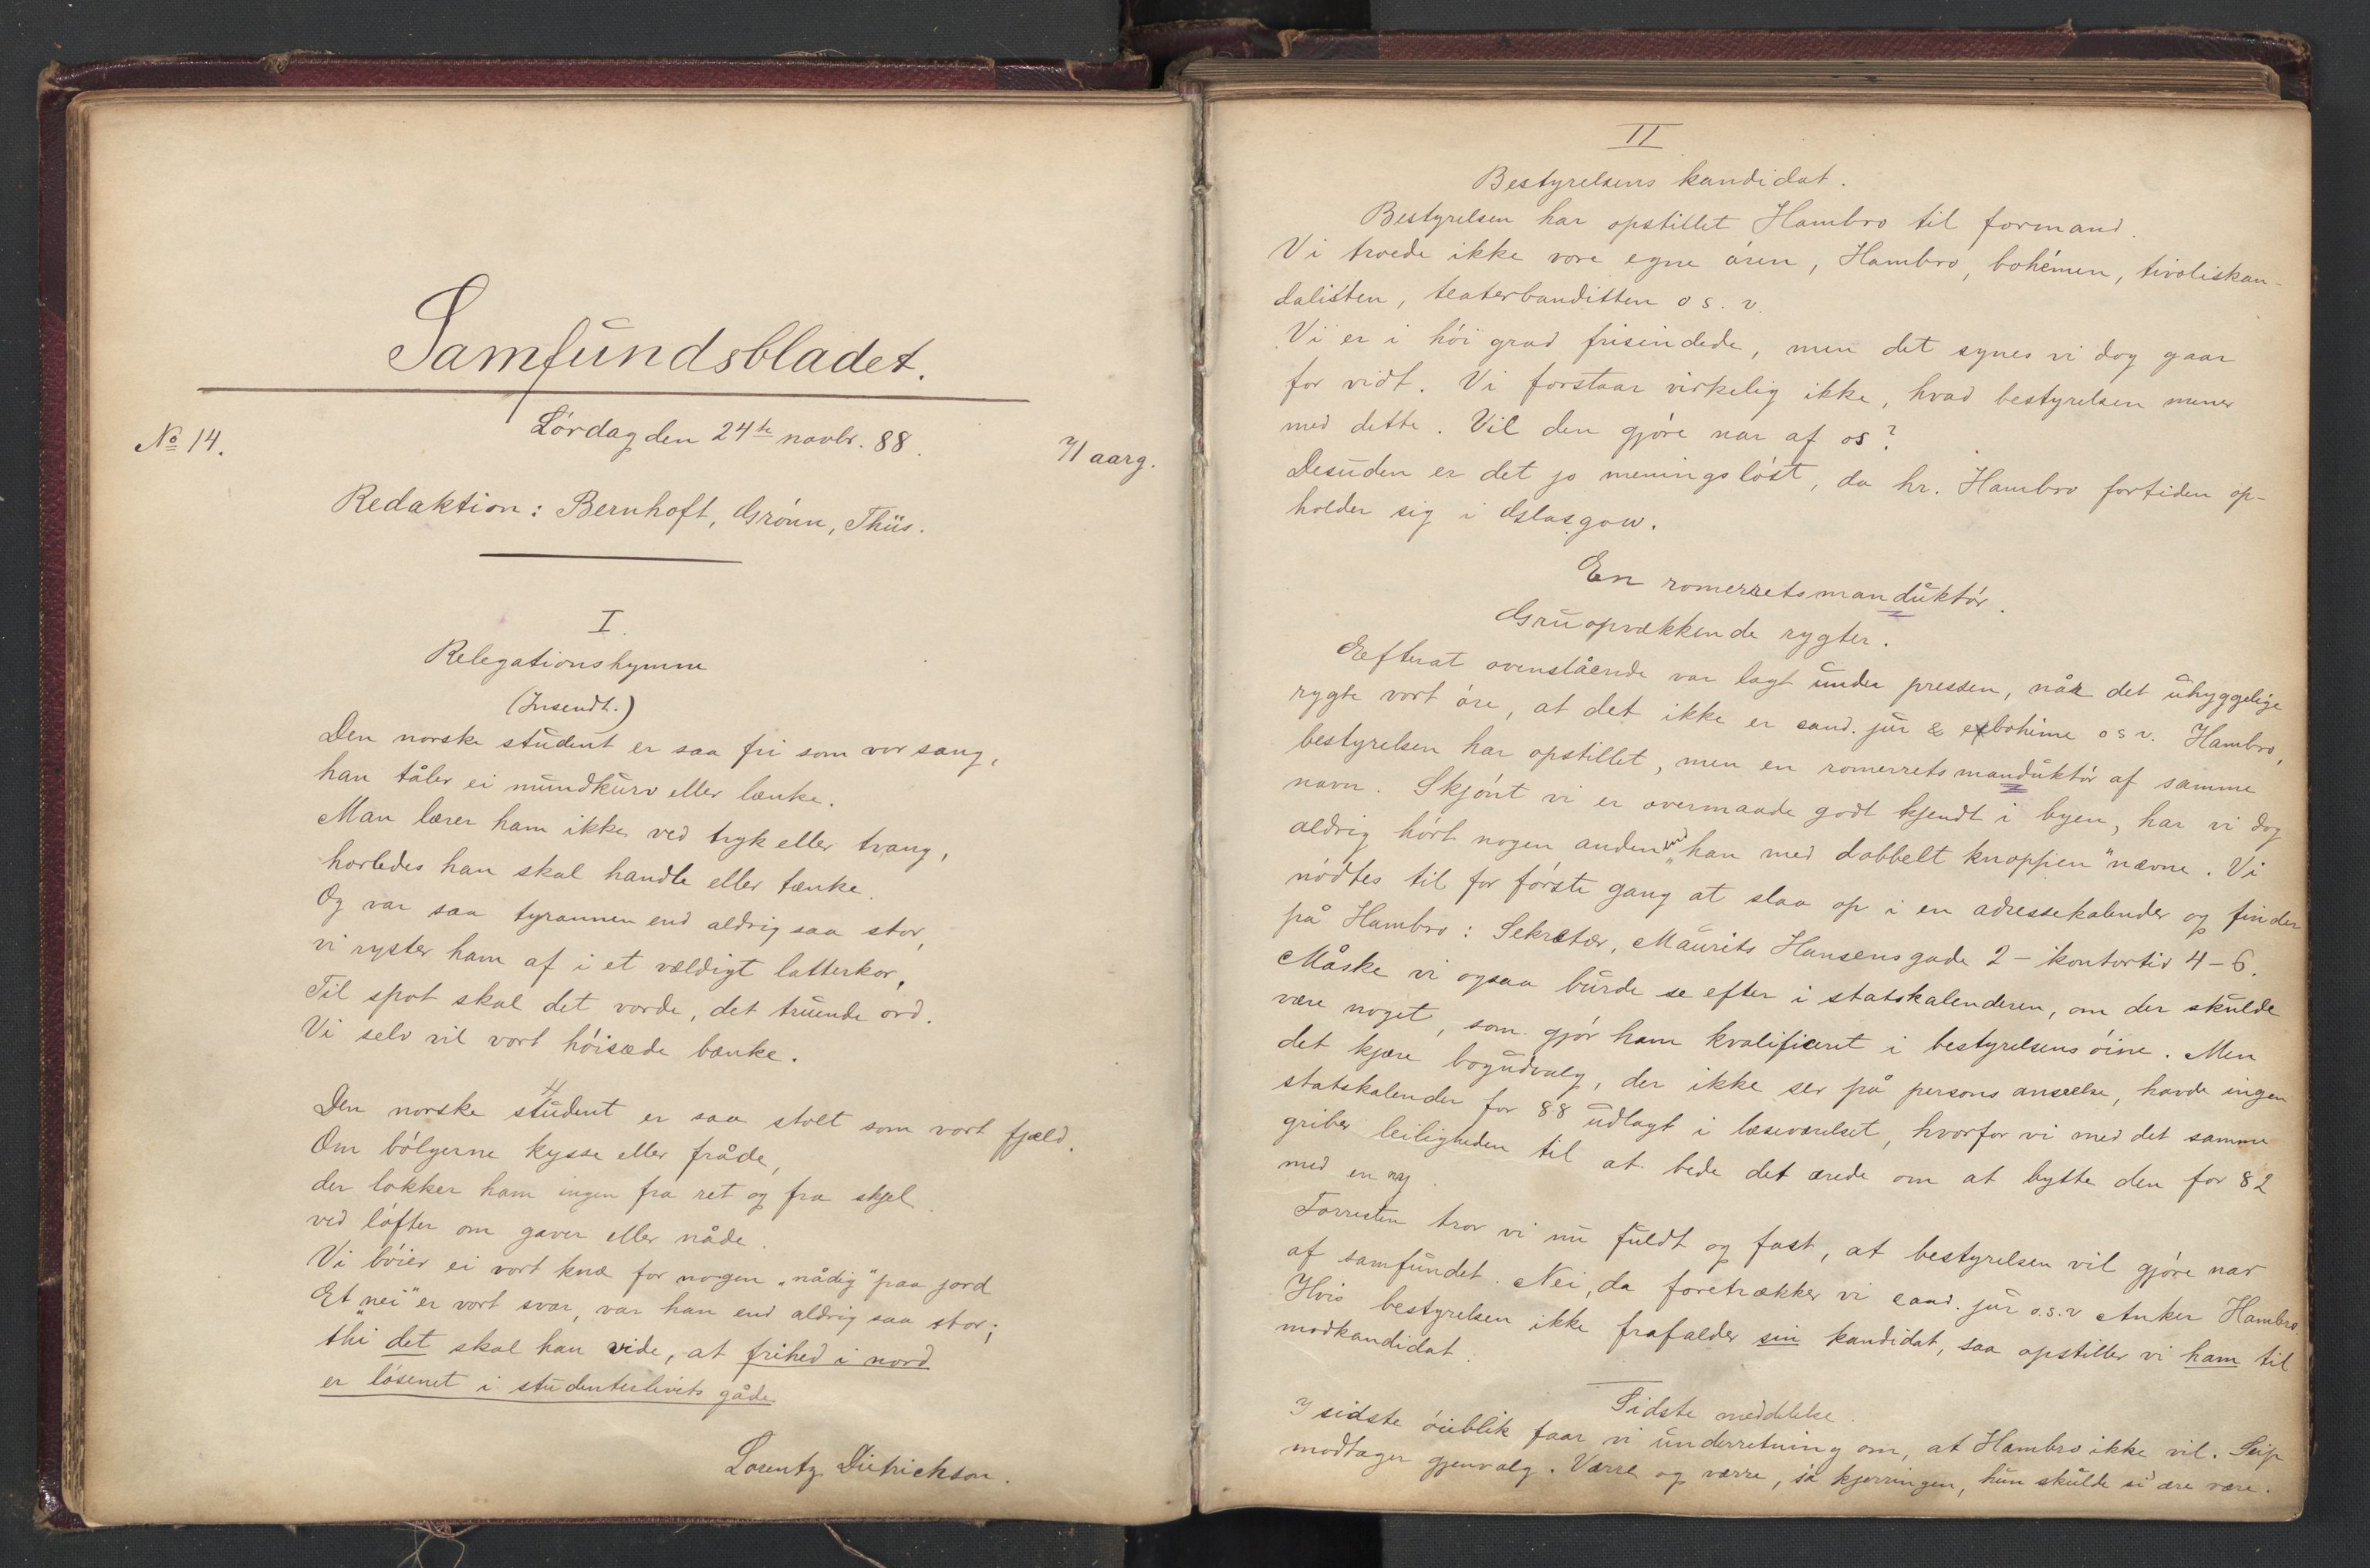 Samfundsbladet.
No 14.
Lørdag den 24de novbr. 88.
71 aarg.
Redaktion: Bernhoft, Grønn, Thiis.
I.
Relegationshymne
(Insendt.)
Den norske student er saa fri som vor sang,
han tåler ei mundkurv eller lænke.
Man lærer ham ikke ved tryk eller tvang,
horledes han skal handle eller tænke.
Og var saa tyrannen end aldrig saa stor,
vi ryster ham af i et vældigt latterkor,
Til spot skal det vorde, det truende ord.
Vi selv vil vort høisæde bænke.
Den norske student er saa stolt som vort fjæld.
Om bølgerne kysse eller fråde,
der lokker ham ingen fra ret og fra skjel
ved løfter om gaver eller nåde.
Vi bøier ei vort knæ for nogen "nådig" paa jord
Et "nei" er vort svar, var han end aldrig saa stor;
thi det skal han vide, at frihed i nord
er løsenet i studenterlivets gåde
Lorentz Dietrichson.
II
Bestyrelsens kandidat.
Bestyrelsen har opstillet Hambro til formand.
Vi troede ikke vore egne øren, Hambro, bohémen, tivoliskan-
dalisten, teaterbanditten o s. v.
Vi er i høi grad frisindede, men det synes vi dog gaar
for vidt. Vi forstaar virkelig ikke, hvad bestyrelsen mener
med dette. Vil den gjøre nar af os?
Desuden er det jo meningsløst, da hr. Hambro fortiden op-
holder sig i Glasgow.
En romerretsmanduktør.
Gruopvækkende rygter.
Eefterat ovenstående var lagt under pressen, når det uhyggelige
rygte vort øre, at det ikke er cand. jur & exbohéme o s v. Hambro,
bestyrelsen har opstillet, men en romerretsmanduktør af samme
navn. Skjønt vi er overmaade godt kjendt i byen, har vi dog
aldrig hørt nogen anden end "han med dobbelt knappen" nævne. Vi
nødtes til for første gang at slaa op i en adressekalender og finder
på Hambro: Sekretær, Maurits Hansens gade 2 - kontortid 4-6.
Måske vi ogsaa burde se efter i statskalenderen, om der skulde
være noget, som gjør ham kvalificeret i bestyrelsens øine. Men
det kjære bogudvalg, der ikke ser på persons anseelse, havde ingen
statskalender for 88 udlagt i læseværelset, hvorfor vi med det samme
griber leiligheden til at bede det ærede om at bytte den for 82
med en ny.
Forresten tror vi nu fuldt og fast, at bestyrelsen vil gjøre nar
af samfundet. Nei, da foretrækker vi cand. jur o.s.v Anker Hambro.
Hvis bestyrelsen ikke frafalder sin kandidat, saa opstiller vi ham til
modkandidat.
Sidste meddelelse.
I sidste øieblik faar vi underretning om, at Hambro ikke vil. Seip
modtager gjenvalg. Værre og værre, sa kjerringen, hun skulde si ære være.